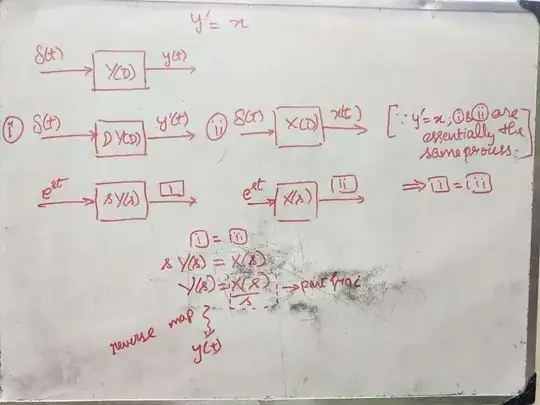 y' = x
δ(t) Y(D) y(t)
i δ(t) DY(D) y'(t) ii δ(t) X(D) x(t) [∵ y'=x, i & ii are
essentially the
same process.]
e^st sY(s) i e^st X(s) ii ⇒ i = ii
i = ii
s Y(s) = X(s)
Y(s) = X(s)/s → part frac
reverse map
y(t)